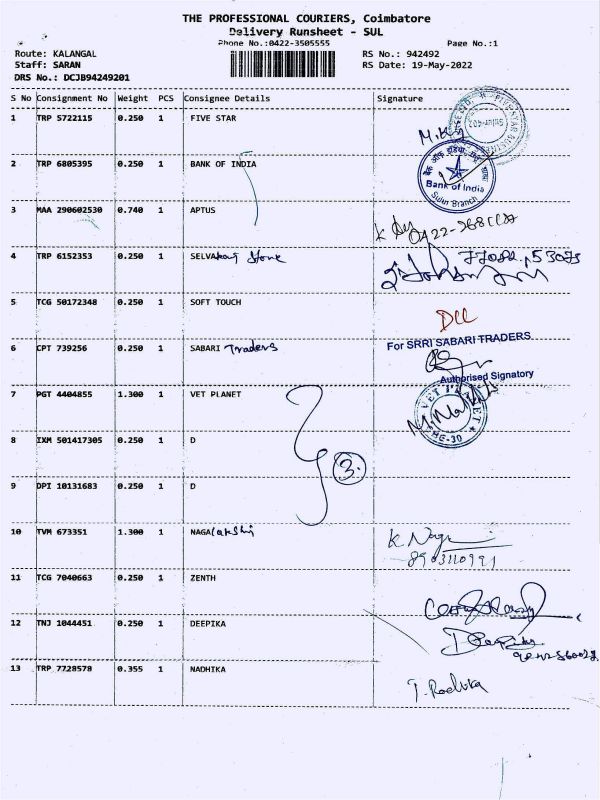 THE PROFESSIONAL COURIERS, Coimbatore
Delivery Runsheet - SUL
Phone No.:0422-3505555
Page No.:1
Route: KALANGAL
RS No.: 942492
Staff: SARAN
RS Date: 19-May-2022
DRS No.: DCJB94249201
S No Consignment No Weight PCS Consignee Details Signature
1 TRP 5722115 0.250 1 FIVE STAR
2 TRP 6805395 0.250 1 BANK OF INDIA
Bank of India
Sulur Branch
3 MAA 290602530 0.740 1 APTUS
4 TRP 6152353 0.250 1 SELVA
5 TCG 50172348 0.250 1 SOFT TOUCH
For SRRI SABARI TRADERS
6 CPT 739256 0.250 1 SABARI Traders
Authorised Signatory
7 PGT 4404855 1.300 1 VET PLANET
HG-30
8 IXM 501417305 0.250 1 D
3.
9 DPI 10131683 0.250 1 D
10 TVM 673351 1.300 1 NAGA
8903110991
11 TCG 7040663 0.250 1 ZENTH
12 TNJ 1044451 0.250 1 DEEPIKA
13 TRP 7728578 0.355 1 NADHIKA